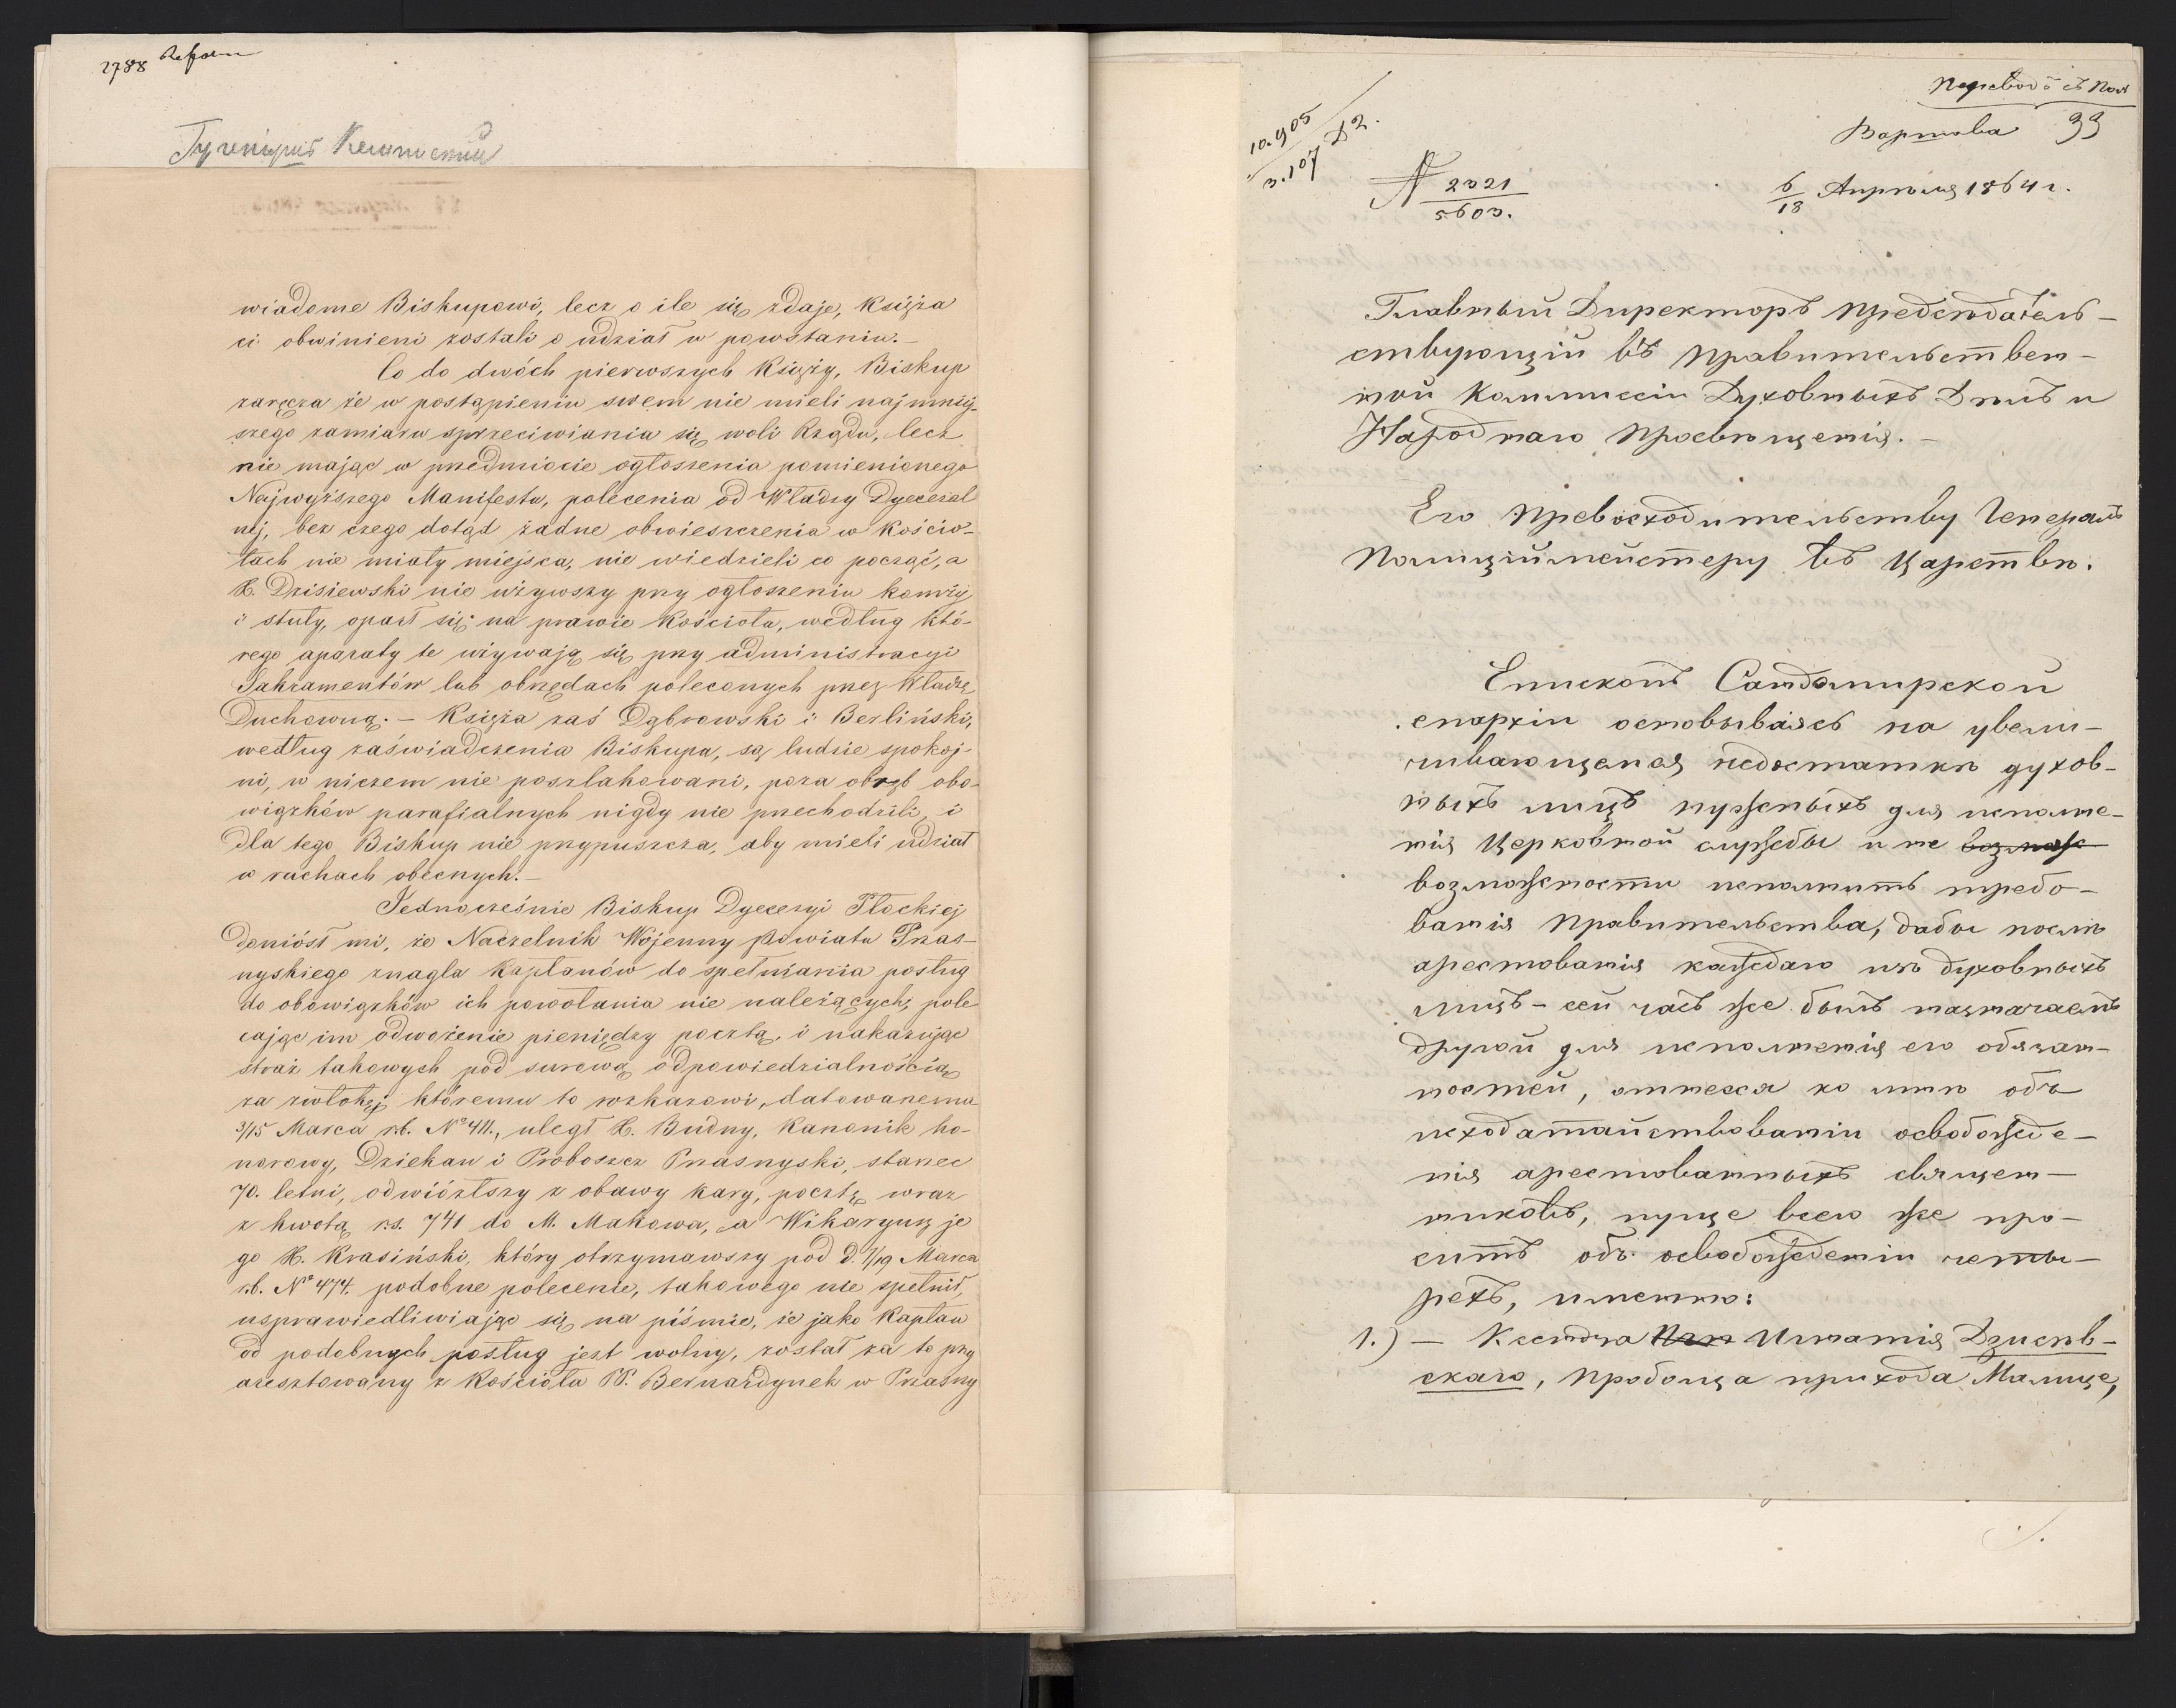 2788
wiadome Biskupowi, lecz o ile się zdaje, Księża
ci obwinieni zostali o udział w powstaniu.—
Co do dwóch pierwszych Księży, Biskup
zaręcza że w postąpieniu swem nie mieli najmniéj-
szego zamiaru sprzeciwiania się woli Rządu, lecz
nie mając w przedmiocie ogłoszenia pomienionego
Najwyższego Manifestu, polecenia od Władzy Dyecezal
nej, bez czego dotąd żadne obwieszczenia w Kościo-
łach nie miały miejsca, nie wiedzieli co począć, a
X. Dzisiewski nie używszy przy ogłoszeniu komży
i stuły, oparł się na prawie Kościoła, według któ-
rego aparaty te używają się przy administracyi
Sakramentów lub obrzędach poleconych przez Władzę
Duchowną.— Księża zaś Dąbrowski i Berliński,
według zaświadczenia Biskupa, są ludzie spokoj-
ni, w niczem nie poszlakowani, poza obręb obo-
wiązków parafialnych nigdy nie przechodzili, i
dla tego Biskup nie przypuszcza, aby mieli udział
w ruchach obecnych.—
Jednocześnie Biskup Dyecezyi Płockiej
doniósł mi, że Naczelnik Wojenny Powiatu Przas-
nyskiego znagla Kapłanów do spełniania posług
do obowiązków ich powołania nie należących, pole
cając im odwożenie pieniędzy pocztą, i nakazując
straż takowych pod surową odpowiedzialnością
za zwłokę, któremu to rozkazowi, datowanemu
3/15 Marca r.b. Nº 411., uległ X. Budny, Kanonik ho-
norowy, Dziekan i Proboszcz Przasnyski, starzec
70. letni, odwiózłszy z obawy kary, pocztę wraz
z kwotą rs. 741 do M. Makowa, a Wikaryusz je
go X. Krasiński, który otrzymawszy pod d. 7/19 Marca
r.b. Nº 474. podobne polecenie, takowego nie spełnił,
usprawiedliwiając się na piśmie, że jako Kapłan
od podobnych posług jest wolny, został za to przy
aresztowany z Kościoła PP. Bernardynek w Przasny
Переводъ съ Пол
Варшава 93
10.905
3.107 Д2.
N 2321
5603.
6/18 Апрѣля 1864 г.
Главный Директоръ Предсѣдатель-
ствующій въ Правительствен-
ной Коммиссіи Духовныхъ Дѣлъ и
Народнаго Просвѣщенія.—
Его Превосходительству Генералъ
Полиціймейстеру въ Царствѣ.
Епископъ Сандомирской
епархіи основываясь на увели-
чивающемся недостаткѣ духов-
ныхъ лицъ нужныхъ для исполне-
нія Церковной службы и не возмож
возможности исполнить требо-
ванія Правительства, дабы послѣ
арестованія каждаго изъ духовныхъ
лицъ – сей часъ же былъ назначаемъ
другой для исполненія его обязан-
ностей, отнесся ко мнѣ объ
исходатайствованіи освобожде-
нія арестованныхъ священ-
никовъ, пуще всего же про-
ситъ объ освобожденіи четы-
рехъ, именно:
1.) — Ксендза Игнатія Дзисѣв-
скаго, Пробоща прихода Малице,